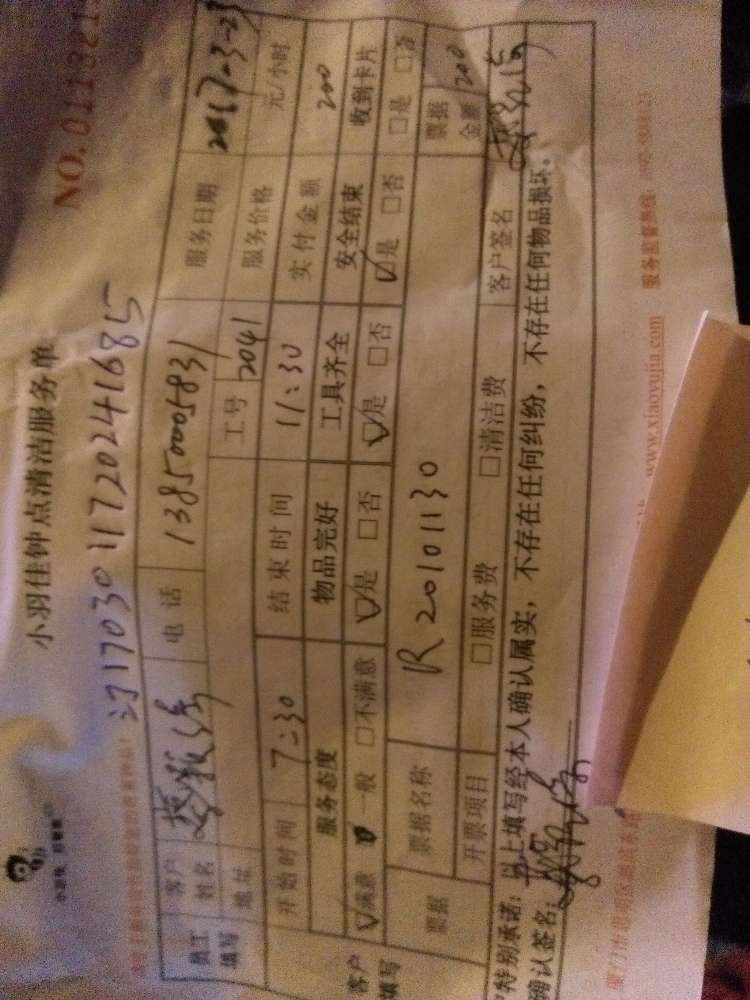 小羽佳 好管家
小羽佳钟点清洁服务单
NO.011321
订170301172024 1685
员工填写
客户姓名
电话 13850005831
服务日期 2017-3-23
地址
工号 2041
服务价格 元/小时
开始时间 7:30
结束时间 11:30
实付金额 200
客户填写
服务态度
物品完好
工具齐全
安全结束
收到卡片
☑满意 一般 □不满意
☑是 □否
☑是 □否
☑是 □否
□是 □否
票据
票据名称 R20101130
票据金额 200
开票项目
□服务费
□清洁费
客户签名
特别承诺：以上填写经本人确认属实，不存在任何纠纷，不存在任何物品损坏。
确认签名：
www.xiaoyujia.com
服务监督热线：